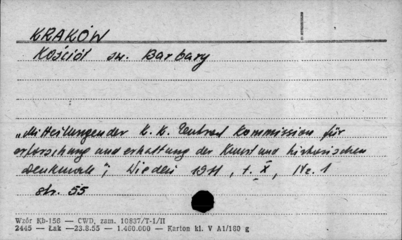 KRAKÓW
Kościół św. Barbary
„Mitteilungen der K. K. Central Kommission für
erforschung und erhaltung der Kunst und historischen
Denkmale", Wiedeń 1911, t. X, Nr. 1
str. 55
Wzór Kb-156 — CWD, zam. 10837/T-1/II
2445 — Łak — 23.8.55 — 1.400.000 — Karton kl. V A1/160 g